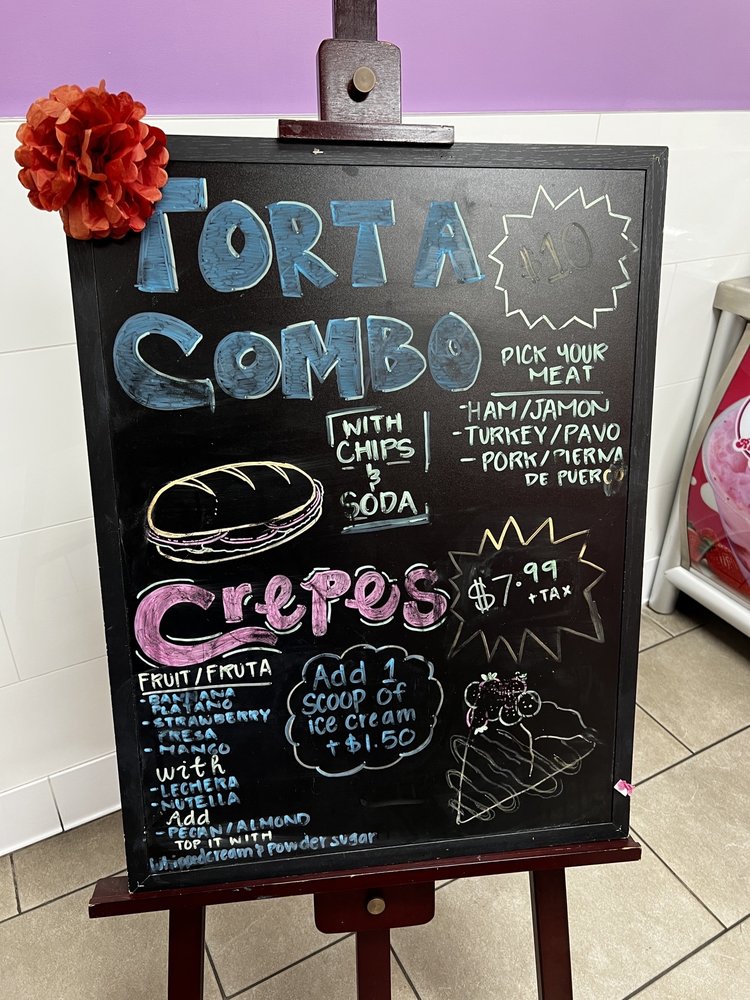 TORTA
COMBO
$10
PICK YOUR
MEAT
-HAM/JAMON
-TURKEY/PAVO
-PORK/PIERNA
DE PUERCO
WITH
CHIPS
&
SODA
Crepes
$7.99
+TAX
FRUIT/FRUTA
-BANNANA
PLATANO
-STRAWBERRY
FRESA
-MANGO
with
-LECHERA
-NUTELLA
Add
-PECAN/ALMOND
TOP IT WITH
whippedcream & Powder sugar
Add 1
SCOOP OF
ice cream
+$1.50